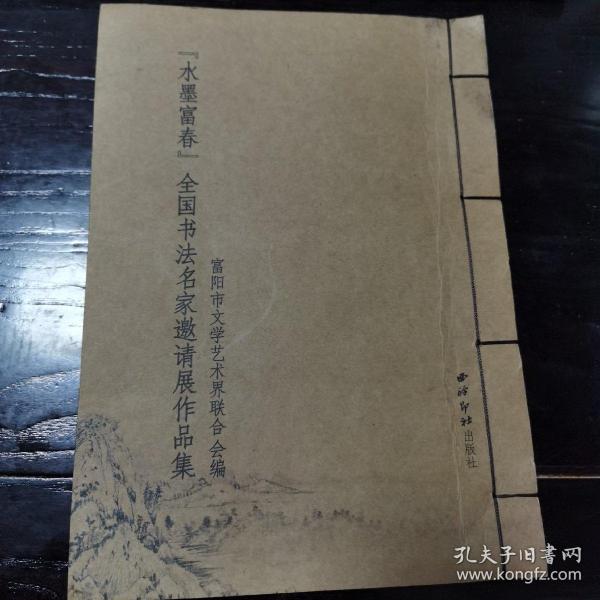 『水墨富春』全国书法名家邀请展作品集
富阳市文学艺术界联合会编
西泠印社出版社
孔夫子旧书网
www.kongfz.com